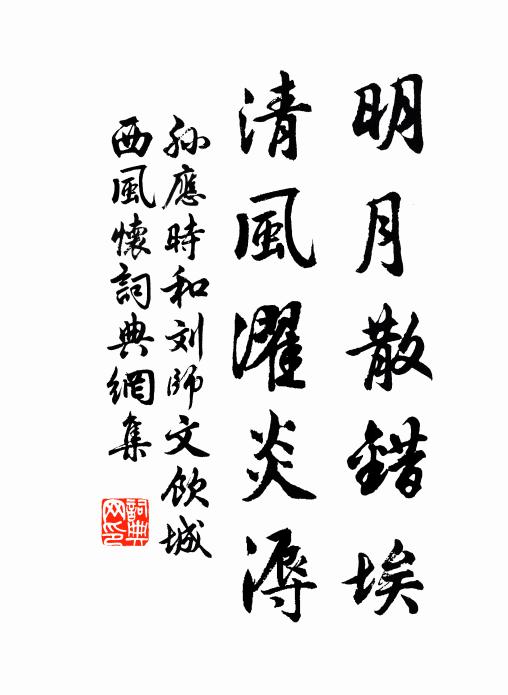 明月散錯埃
清風濯炎溽
孫應時和刘師文飲城
西風懷詞典網集
詞典
网印